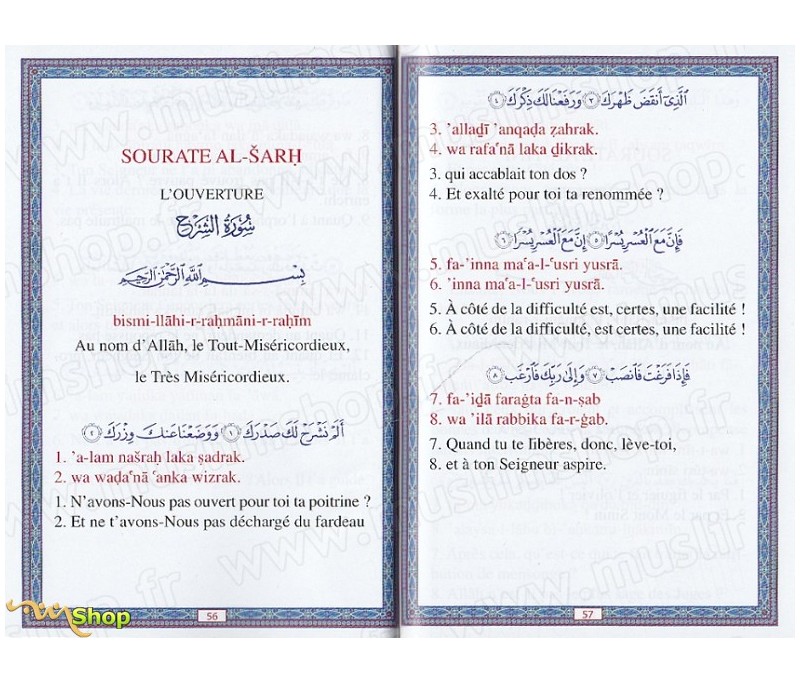 SOURATE AL-ŠARḤ
L’OUVERTURE
سُورَةُ الشَّرْحِ
بِسْمِ اللَّهِ الرَّحْمَٰنِ الرَّحِيمِ
bismi-llāhi-r-raḥmāni-r-raḥīm
Au nom d’Allāh, le Tout-Miséricordieux,
le Très Miséricordieux.
أَلَمْ نَشْرَحْ لَكَ صَدْرَكَ ١ وَوَضَعْنَا عَنكَ وِزْرَكَ ٢
1. ’a-lam našraḥ laka ṣadrak.
2. wa waḍa‘nā ‘anka wizrak.
1. N’avons-Nous pas ouvert pour toi ta poitrine ?
2. Et ne t’avons-Nous pas déchargé du fardeau
56
الَّذِي أَنقَضَ ظَهْرَكَ ٣ وَرَفَعْنَا لَكَ ذِكْرَكَ ٤
3. ’allaḏī ’anqaḍa ẓahrak.
4. wa rafa‘nā laka ḏikrak.
3. qui accablait ton dos ?
4. Et exalté pour toi ta renommée ?
فَإِنَّ مَعَ الْعُسْرِ يُسْرًا ٥ إِنَّ مَعَ الْعُسْرِ يُسْرًا ٦
5. fa-’inna ma‘a-l-‘usri yusrā.
6. ’inna ma‘a-l-‘usri yusrā.
5. À côté de la difficulté est, certes, une facilité !
6. À côté de la difficulté, est certes, une facilité !
فَإِذَا فَرَغْتَ فَانصَبْ ٧ وَإِلَىٰ رَبِّكَ فَارْغَب ٨
7. fa-’iḏā faraġta fa-n-ṣab
8. wa ’ilā rabbika fa-r-ġab.
7. Quand tu te libères, donc, lève-toi,
8. et à ton Seigneur aspire.
57
Shop
www.muslimshop.fr